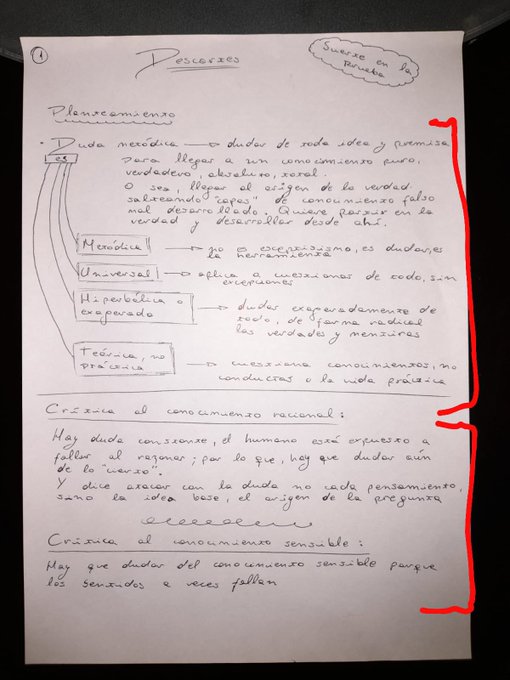 1
Descartes
Suerte en la
prueba
Planteamiento
Duda metódica → dudar de toda idea y premisa
es
para llegar a un conocimiento puro,
verdadero, absoluto, total.
O sea, llegar al origen de la verdad
salteando "capas" de conocimiento falso
mal desarrollado. Quiere partir en la
verdad y desarrollar desde ahí.
Metódica → no es escepticismo, es dudar, es
la herramienta
Universal → aplica a cuestionar de todo, sin
excepciones
Hiperbólica o
exagerada → dudar exageradamente de
todo, de forma radical
las verdades y mentiras
Teórica, no
práctica → cuestiona conocimientos, no
conductas o la vida práctica
Crítica al conocimiento racional:
Hay duda constante, el humano está expuesto a
fallar al razonar; por lo que, hay que dudar aún
de lo "cierto".
Y dice atacar con la duda no cada pensamiento,
sino la idea base, el origen de la pregunta
Crítica al conocimiento sensible:
Hay que dudar del conocimiento sensible porque
los sentidos a veces fallan